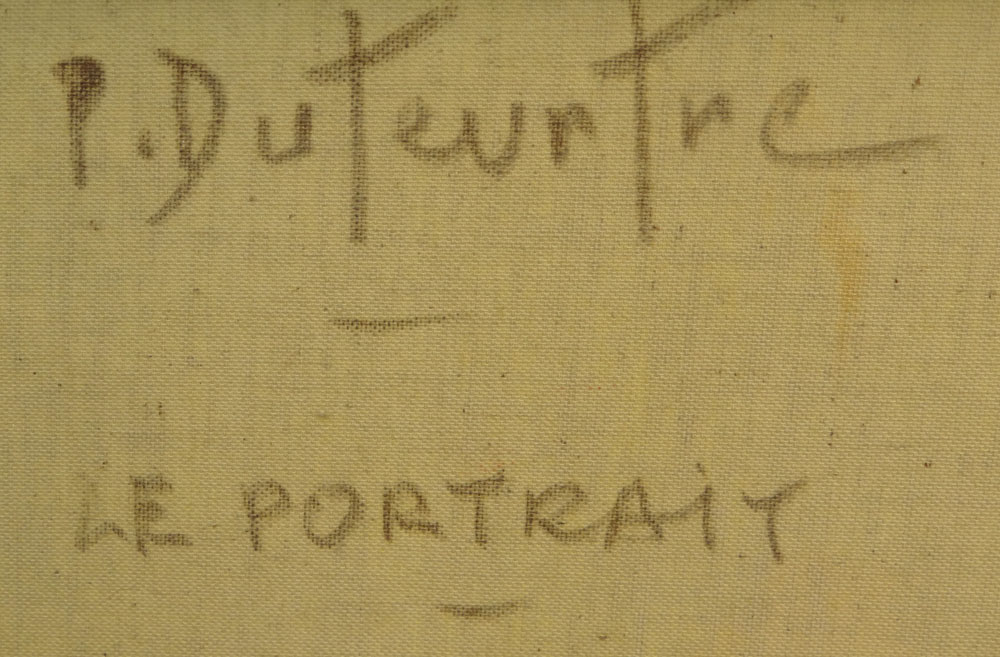 P. Duteurtre
LE PORTRAIT